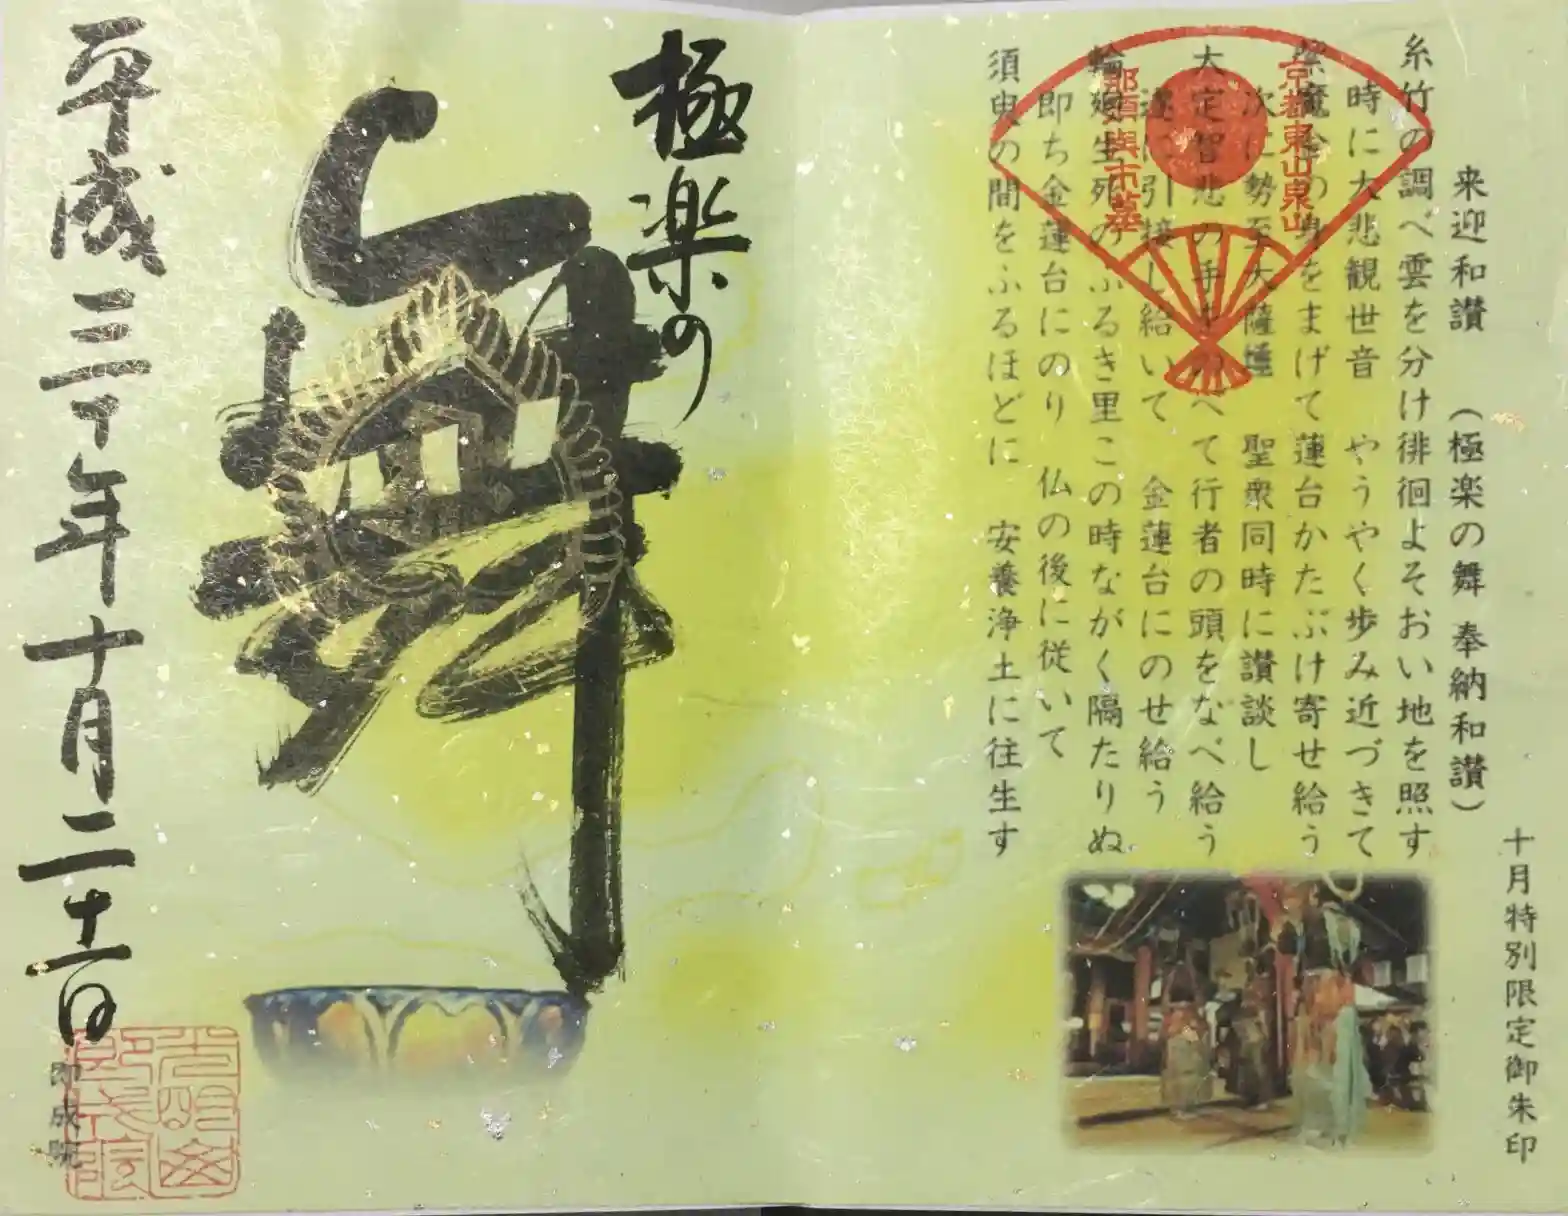 十月特別限定御朱印
来迎和讃 (極楽の舞 奉納和讃)
糸竹の調べ雲を分け徘徊よそおい地を照す
時に大悲観世音 やうやく歩み近づきて
紫魔金の身をまげて蓮台かたぶけ寄せ給う
次に勢至大薩埵 聖衆同時に讃談し
大定智悲の手をのべて行者の頭をなべ給う
遂に引接し給いて 金蓮台にのせ給う
輪廻生死のふるき里この時ながく隔たりぬ
即ち金蓮台にのり 仏の後に従いて
須臾の間をふるほどに 安養浄土に往生す
京都東山泉山
那須与市墓
極楽の
舞
平成三十年十月二十一日
即成院